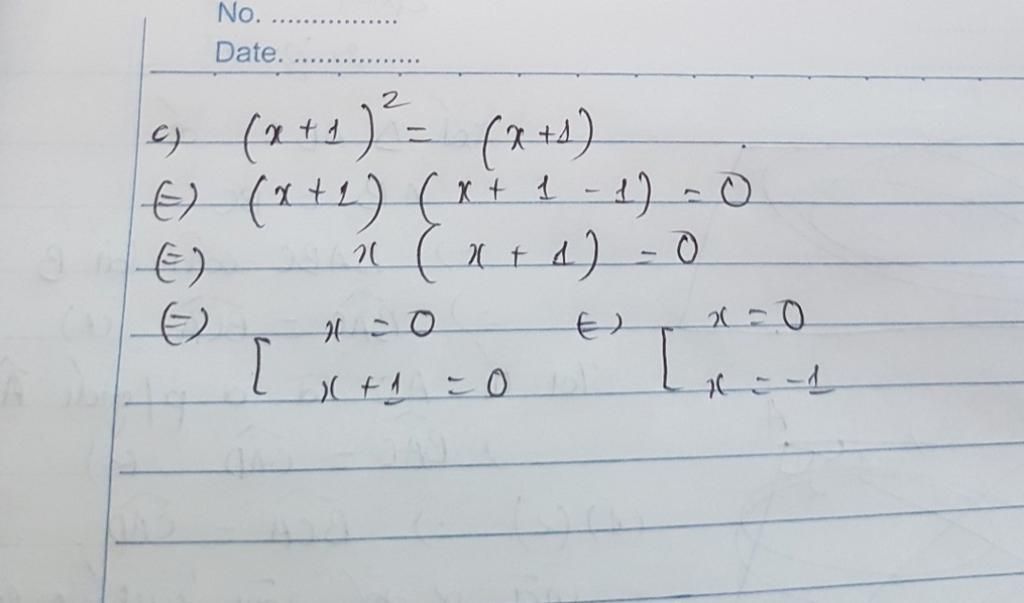 No. ................
Date. ................
c) (x+1)² = (x+1)
⇔ (x+1) (x+1-1) = 0
⇔ x (x+1) = 0
⇔ [ x = 0 ⇔ [ x = 0
x+1 = 0 x = -1